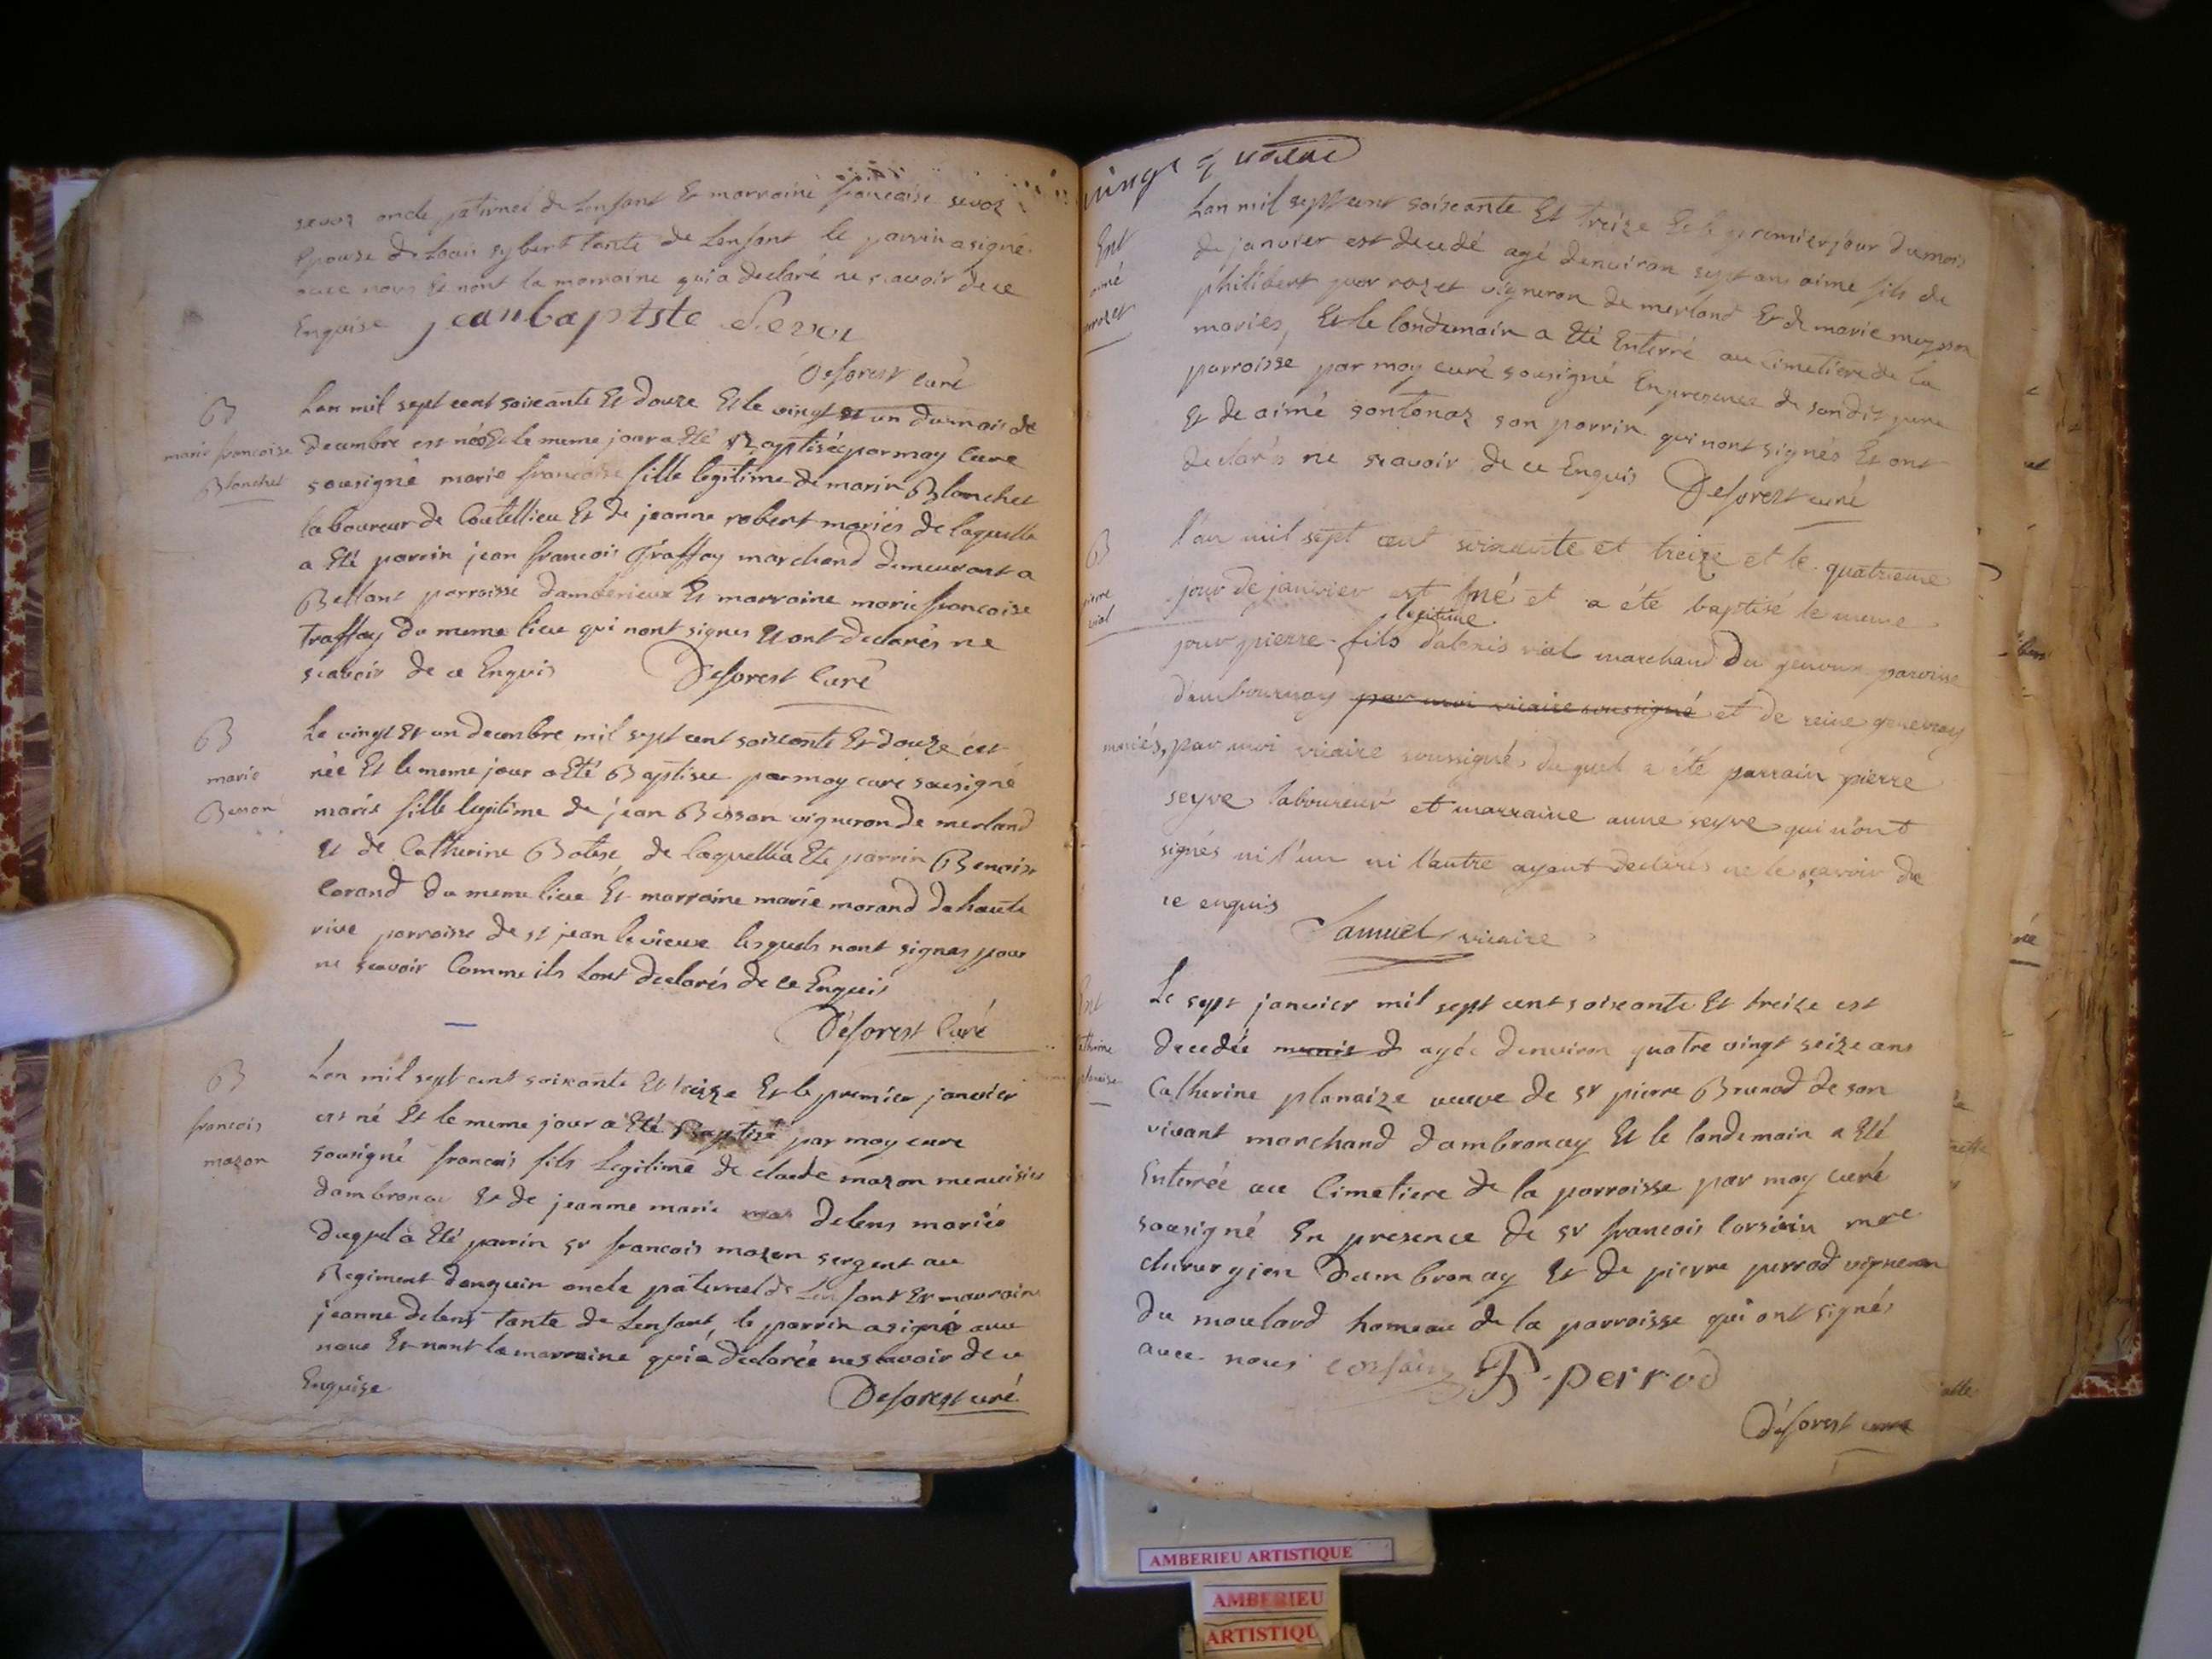 sevoz oncle paternel de Lenfant Et marraine francoise sevoz
Epouze de Louis sybert tante de Lenfant le parrin a signé
avec nous Et nont la marraine qui a declaré ne scavoir de ce
Enquise jean baptste Sevoz
Deforest curé
B
marie francoise
Blanchet
Lan mil sept cent soixante Et douze Et le vingt et un du mois de
decembre est née Et le meme jour a Eté Baptisée par moy Curé
sousigné marie francoise fille legitime de marin Blanchet
laboureur de Coutellieu Et de jeanne robert mariés de laquelle
a Eté parrin jean francois Traffay marchand demeurant a
Bettant parroisse damberieux Et marraine marie francoise
Traffay du meme lieu qui nont signes Et ont declarés ne
scavoir de ce Enquis Deforest Curé
B
marie
Besson
Le vingt Et un decembre mil sept cent soixante Et douze est
née Et le meme jour a Eté Baptisee par moy curé sousigné
marie fille legitime de jean Besson vigneron de merland
Et de Catherine de laquelle a Eté parrin Benoist
Corand du meme lieu Et marraine marie morand de haute
rive parroisse de st jean le vieux lesquels nont signes pour
ne scavoir Comme ils Lont declarés de ce Enquis
Déforest Curé
B
francois
mazon
Lan mil sept cent soixante Et treize Et le premier janvier
est né Et le meme jour a Eté Baptisé par moy curé
sousigné francois fils Legitime de claude mazon menuisier
dambronay Et de jeanne marie delens mariés
duquel a Eté parrin sr francois mazon sergent au
Regiment danguin oncle paternel de Lenfant Et marraine
jeanne delens tante de Lenfant, le parrin a signé avec
nous Et nont la marraine qui a declarée ne scavoir de ce
Enquise
Deforest curé
vingt &
Ent
aimé
Lan mil sept cent soixante Et treize Et le premier jour du mois
de janvier est decedé agé denviron sept ans aimé fils de
philibert vigneron de merland Et de marie meysson
mariés, Et le landemain a Eté Enterré au Cimetiere de la
parroisse par moy curé sousigné En presence de sondit pere
Et de aimé sontonaz son parrin qui nont signés Et ont
declarés ne scavoir de ce Enquis Deforest curé
B
pierre
vial
l'an mil sept cent soixante et treize et le quatrieme
jour de janvier est né et a été baptisé le meme
jour pierre fils legitime d'alexis vial marchand du genoux paroisse
d'ambournay par moi vicaire soussigné et de reine
mariés, par moi vicaire soussigné, duquel a été parrain pierre
seyve laboureur et marraine anne seyve qui n'ont
signés ni l'un ni l'autre ayant declarés ne le sçavoir de
ce enquis
Samuel vicaire
Ent
Catherine
planaise
Le sept janvier mil sept cent soixante Et treize est
decedée agée denviron quatre vingt seize ans
Catherine planaize veuve de sr pierre Brunod de son
vivant marchand dambronay Et le landemain a Eté
Enterée au Cimetiere de la parroisse par moy curé
sousigné En presence de sr francois Corsain mre
chirurgien Dambronay Et de pierre perrod vigneron
du moulard hameau de la parroisse qui ont signés
avec nous corsain P. perrod
Déforest curé
AMBERIEU ARTISTIQUE
AMBERIEU
ARTISTIQU